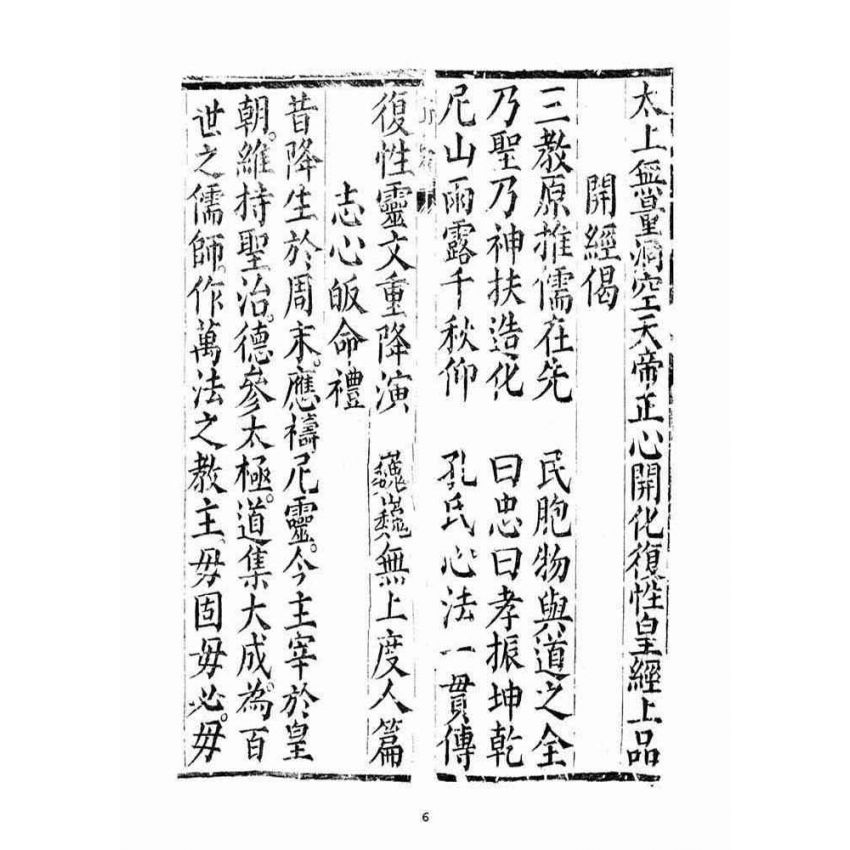 太上洞空天帝正心開化復性皇經上品
開經偈
三教原推儒在先　民胞物與道之全
乃聖乃神扶造化　曰忠曰孝振坤乾
尼山雨露千秋仰　孔氏心法一貫傳
復性靈文重降演　巍巍無上度人篇
志心皈命禮
昔降生於周末。應禱尼靈。今主宰於皇
朝。維持聖治。德參太極。道集大成。為百
世之儒師。作萬法之教主。毋固毋必。毋
6